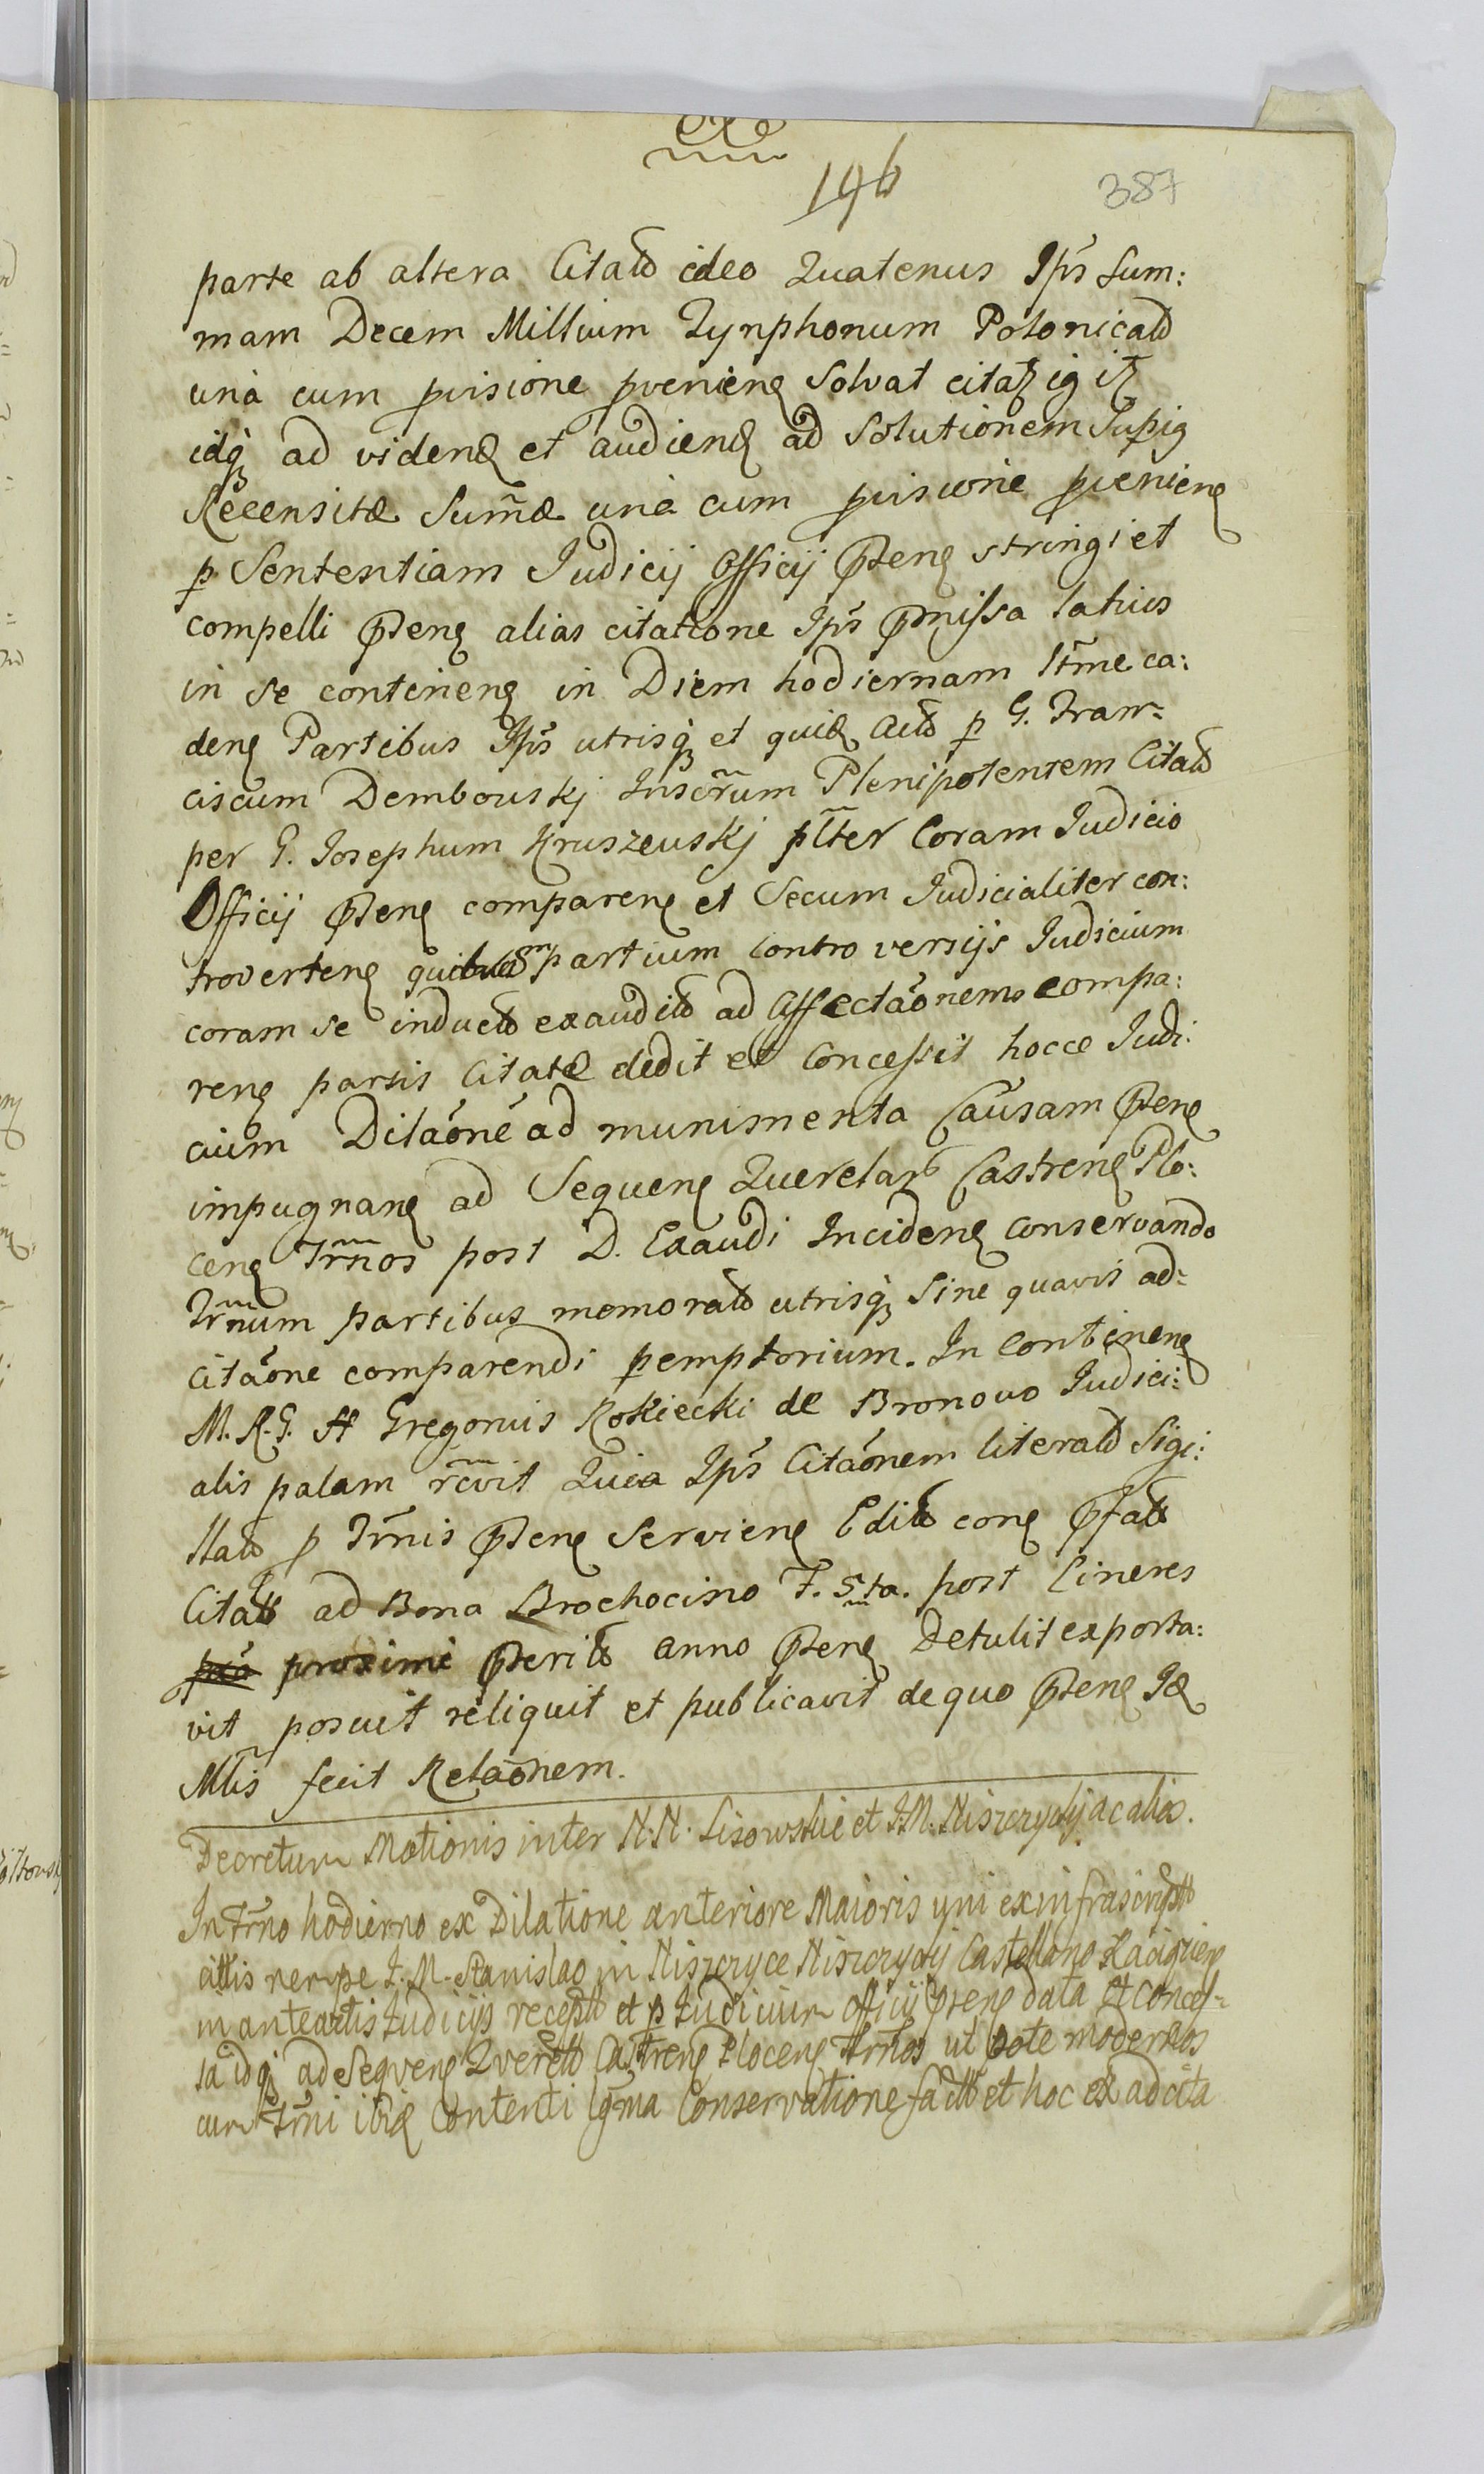 196
387
parte ab altera Citatt ideo Quatenus Ips Sum:
mam Decem Millium Tynphonum Polonicatt
una cum pvisione pvenien Solvat citat ig it
idq ad viden et audien ad Solutionem Supig
Recensitæ Sum̃æ una cum pvisione pvenien
p Sententiam Judicij Officij Pten stringi et
compelli Pten alias citatione Ips Pmissa latius
in se continen in Diem hodiernam Itme ca:
den Partibus Ips utrisq et quid Actt p G. Fran=
ciscum Dembouskj Inscrum Plenipotentem Citatt
per G. Josephum Kruszeuskj plter Coram Judicio
Officij Pten comparen et Secum Judicialiter con:
troverten partium controversijs Judicium
coram se inductt exauditt ad Affectaonem compa:
ren partis Citatæ dedit et Concessit hocce Judi:
cium Dilaone ad munimenta Causam Pten
impugnan ad Sequen Querelar Castren Plo:
cen Trnos post D. Exaudi Inciden conservando
Trnum partibus memoratt utrisq Sine quavis ad=
citaone comparendi pemptorium. In Continen
M. R. G. H Gregorius Rokiecki de Bronovo Judici:
alis palam rcvit Quia Ips Citaonem literatt Sigi:
llatt p Trnis Pten Servien Editt con Pfatt
Citatt ad Bona Brochocino F. 5ta. post Cineres
proxime Pteritt anno Pten Detulit exporta:
vit posuit reliquit et publicavit de quo Pten Id
Mtis fecit Relaonem.
Decretum Motionis inter N.N. Lisowskie et J.M. Niszczycky ac alios.
In Trno hodierno ex Dilatione anteriore Maioris yni ex infrascriptt
attis nempe J. M. Stanislao in Niszczyce Niszczycky Castellano Raciązien
in anteactis Judicijs receptt et p Judicium Officij Pten data et conces=
sa idq ad Sequen Querett Castren Plocen Trnos ut pote modernos
cum Trni ibid Contenti lgma Conservatione factt et hoc ex adcita